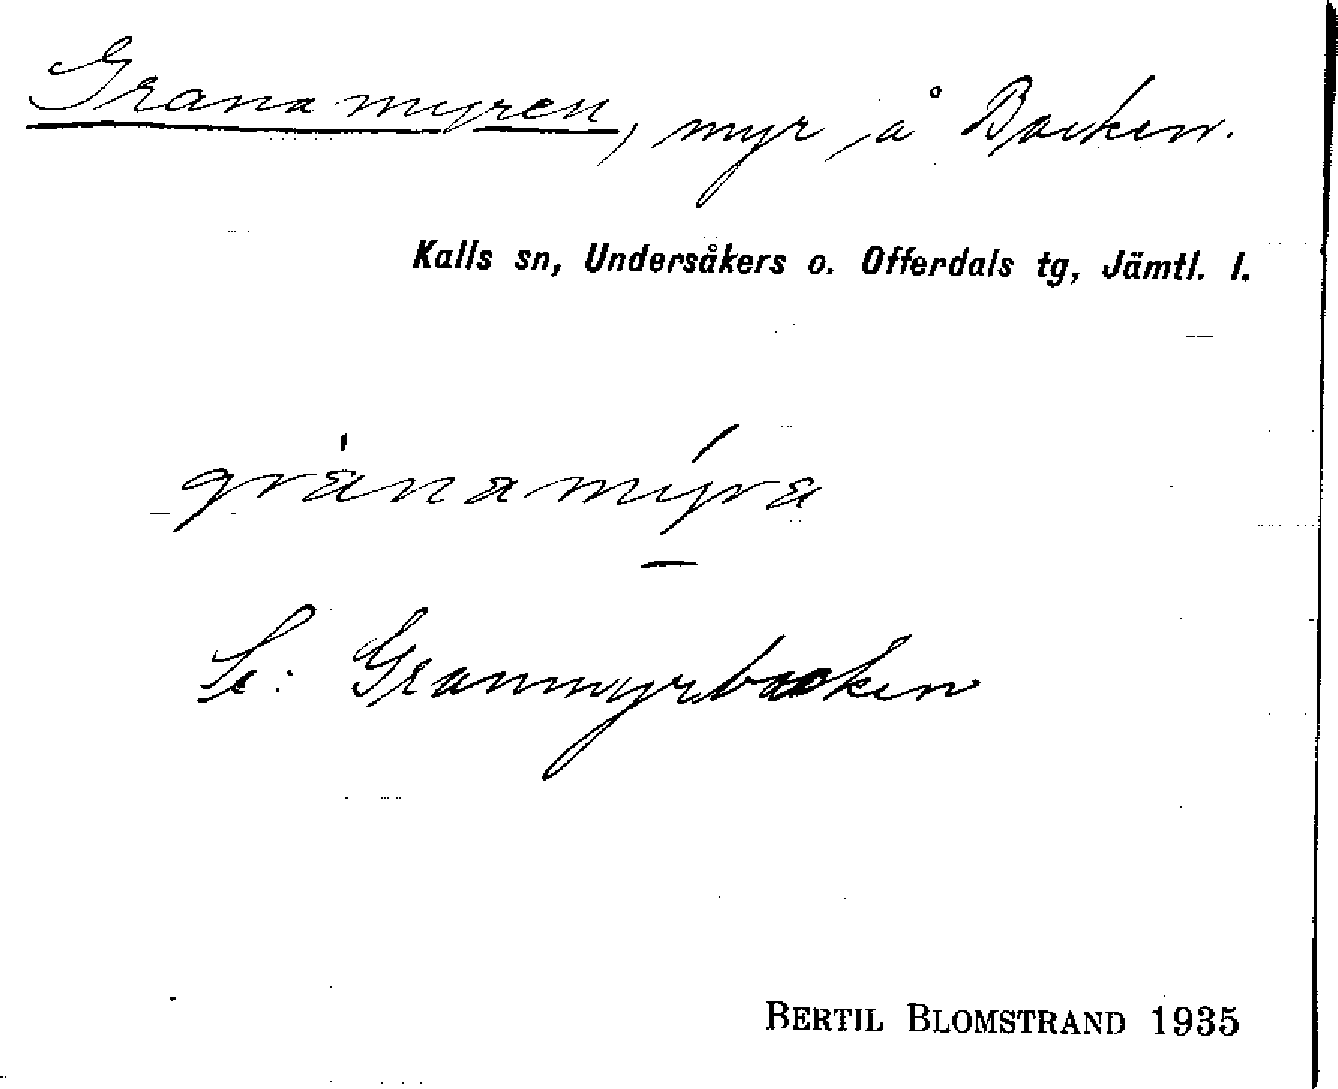 Granamyren, myr å Backen.
Kalls sn, Undersåkers o. Offerdals tg, Jämtl. l.
grànamýra
Se: Granmyrbacken
BERTIL BLOMSTRAND 1935